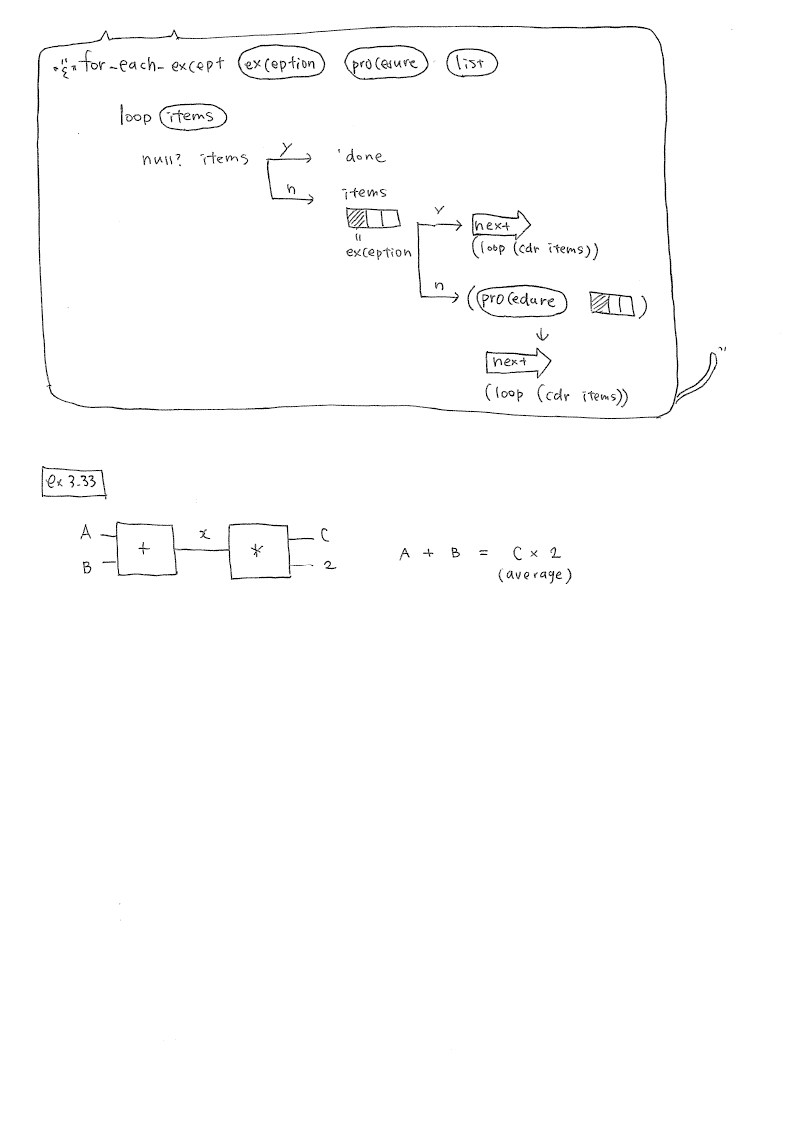 for-each-except exception procesure list
loop items
null? items y 'done
n items
exception
y next
(loop (cdr items))
n (procedure )
next
(loop (cdr items))
ex 3.33
A + x * C
B 2
A + B = C × 2
(average)